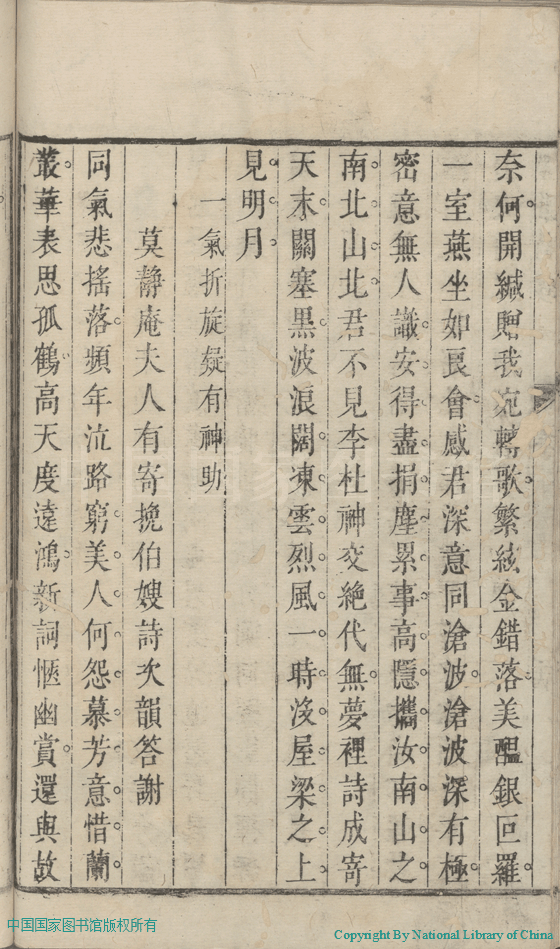 奈何開緘贈我宛轉歌繁絃金錯落美醞銀叵羅
一室燕坐如良會感君深意同滄波滄波深有極
密意無人識安得盡捐塵累事高隱攜汝南山之
南北山北君不見李杜神交絶代無夢裡詩成寄
天末關塞黒波浪闊凍雲烈風一時沒屋梁之上
見明月
一氣折旋疑有神助
莫靜庵夫人有寄挽伯嫂詩次韻答謝
同氣悲搖落頻年泣路窮美人何怨慕芳意惜蘭
叢華表思孤鶴高天度遠鴻新詞愜幽賞還與故
中国国家图书馆版权所有
Copyright By National Library of China